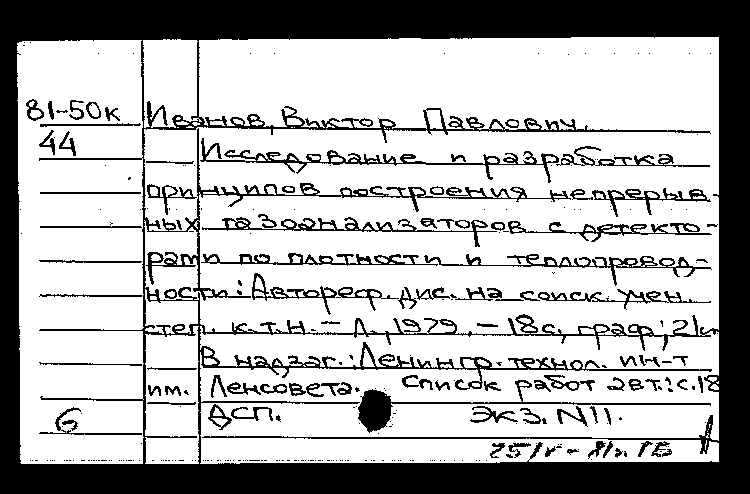 81-50к Иванов, Виктор Павлович.
44 Исследование и разработка
принципов построения непрерыв-
ных газоанализаторов с детекто-
рами по плотности и теплопровод-
ности: Автореф. дис. на соиск. учен.
степ. к.т.н. - Л., 1979. - 18с, граф; 21см
В надзаг.: Ленингр. технол. ин-т
им. Ленсовета. Список работ авт.: с.18
6 ДСП. Экз. N11.